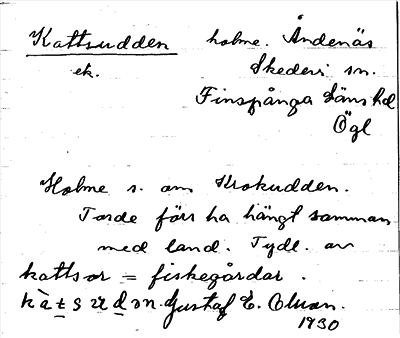 Kattsudden holme. Åndenäs
ek. Skedevi sn.
Finspånga läns hd
Ögl
Holme s. om Krokudden.
Torde förr ha hängt samman
med land. Tydl. av
kattsor = fiskegårdar.
Gustaf E. Olsson.
1930